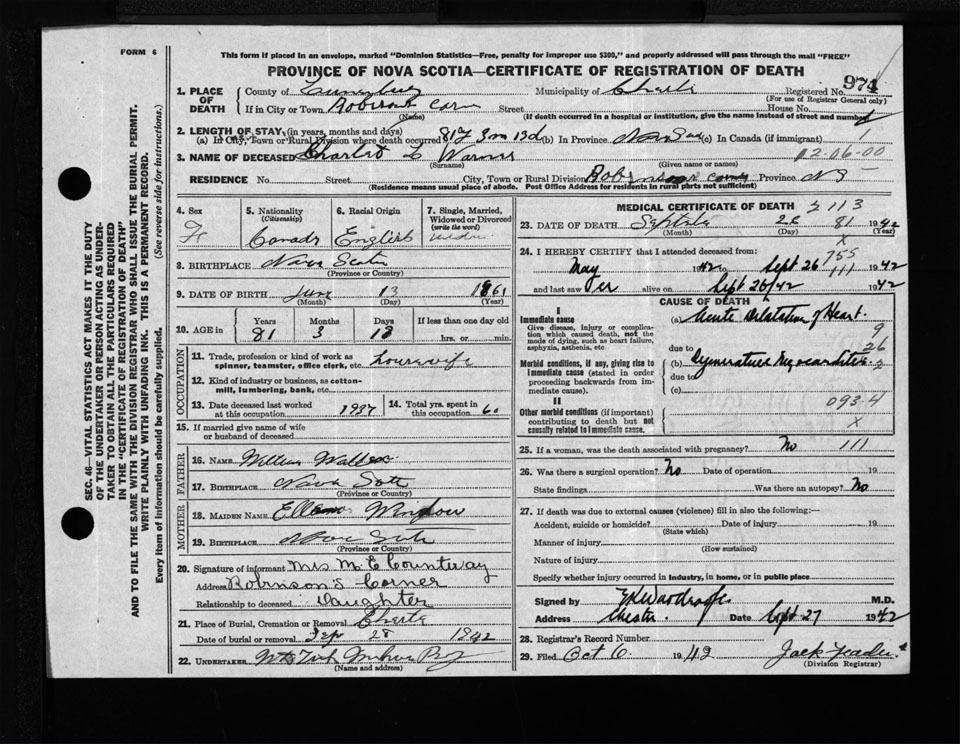 FORM 6
This form if placed in an envelope, marked "Dominion Statistics—Free, penalty for improper use $300," and properly addressed will pass through the mail "FREE"
PROVINCE OF NOVA SCOTIA—CERTIFICATE OF REGISTRATION OF DEATH
974
1. PLACE OF DEATH
County of Municipality of Registered No.
(For use of Registrar General only)
If in City or Town Street House No.
(Name) (If death occurred in a hospital or institution, give the name instead of street and number)
2. LENGTH OF STAY, (in years, months and days)
(a) In City, Town or Rural Division where death occurred 81y 3m 13d (b) In Province (c) In Canada (if immigrant)
3. NAME OF DECEASED
(Surname) (Given name or names)
12-06-00
RESIDENCE No. Street City, Town or Rural Division Province N S
(Residence means usual place of abode. Post Office Address for residents in rural parts not sufficient)
4. Sex F
5. Nationality (Citizenship)
6. Racial Origin English
7. Single, Married, Widowed or Divorced (write the word)
8. BIRTHPLACE Nova Scotia
(Province or Country)
9. DATE OF BIRTH June 13 1861
(Month) (Day) (Year)
10. AGE in Years Months Days If less than one day old
81 3 13 hrs. or min.
OCCUPATION
11. Trade, profession or kind of work as spinner, teamster, office clerk, etc. housewife
12. Kind of industry or business, as cotton-mill, lumbering, bank, etc.
13. Date deceased last worked at this occupation 1937
14. Total yrs. spent in this occupation 60
15. If married give name of wife or husband of deceased
FATHER
16. NAME William
17. BIRTHPLACE Nova
(Province or Country)
MOTHER
18. MAIDEN NAME
19. BIRTHPLACE
(Province or Country)
20. Signature of informant Mrs M. E Countway
Address Robinson's Corner
Relationship to deceased Daughter
21. Place of Burial, Cremation or Removal
Date of burial or removal Sep 28 1942
22. UNDERTAKER
(Name and address)
MEDICAL CERTIFICATE OF DEATH 2113
23. DATE OF DEATH 26 81 1942
(Month) (Day) (Year)
24. I HEREBY CERTIFY that I attended deceased from:
x
755
May 1942 to Sept 26 1942
111
and last saw her alive on Sept 26/42 1942
CAUSE OF DEATH
I
Immediate cause
Give disease, injury or complication which caused death, not the mode of dying, such as heart failure, asphyxia, asthenia, etc.
(a) Acute Dilatation of Heart
9
due to 26
Morbid conditions, if any, giving rise to immediate cause (stated in order proceeding backwards from immediate cause).
(b) Myocarditis
due to
(c)
II
093.4
Other morbid conditions (if important) contributing to death but not causally related to immediate cause.
x
25. If a woman, was the death associated with pregnancy? No 111
26. Was there a surgical operation? No Date of operation 19
State findings Was there an autopsy? No
27. If death was due to external causes (violence) fill in also the following:—
Accident, suicide or homicide? Date of injury 19
(State which)
Manner of injury
(How sustained)
Nature of injury
Specify whether injury occurred in industry, in home, or in public place
Signed by M.D.
Address Chester Date Sept 27 1942
28. Registrar's Record Number
29. Filed Oct 6 1942 Jack
(Division Registrar)
SEC. 46—VITAL STATISTICS ACT MAKES IT THE DUTY
OF THE UNDERTAKER OR PERSON ACTING AS UNDER-
TAKER TO OBTAIN ALL THE PARTICULARS REQUIRED
IN THE "CERTIFICATE OF REGISTRATION OF DEATH"
AND TO FILE THE SAME WITH THE DIVISION REGISTRAR WHO SHALL ISSUE THE BURIAL PERMIT.
WRITE PLAINLY WITH UNFADING INK. THIS IS A PERMANENT RECORD.
Every item of information should be carefully supplied. (See reverse side for instructions.)